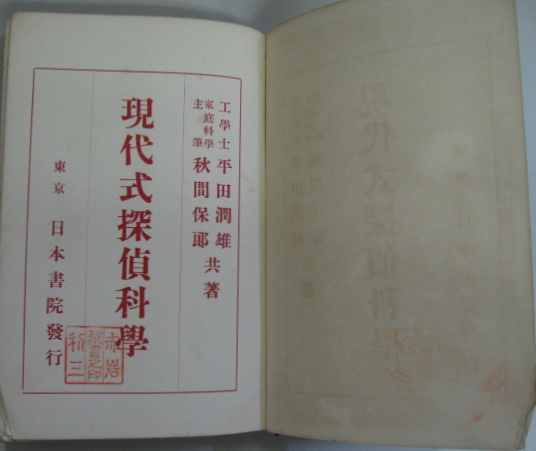 工學士 平田潤雄
家庭科學主筆 秋間保郎
共著
現代式探偵科學
東京 日本書院發行